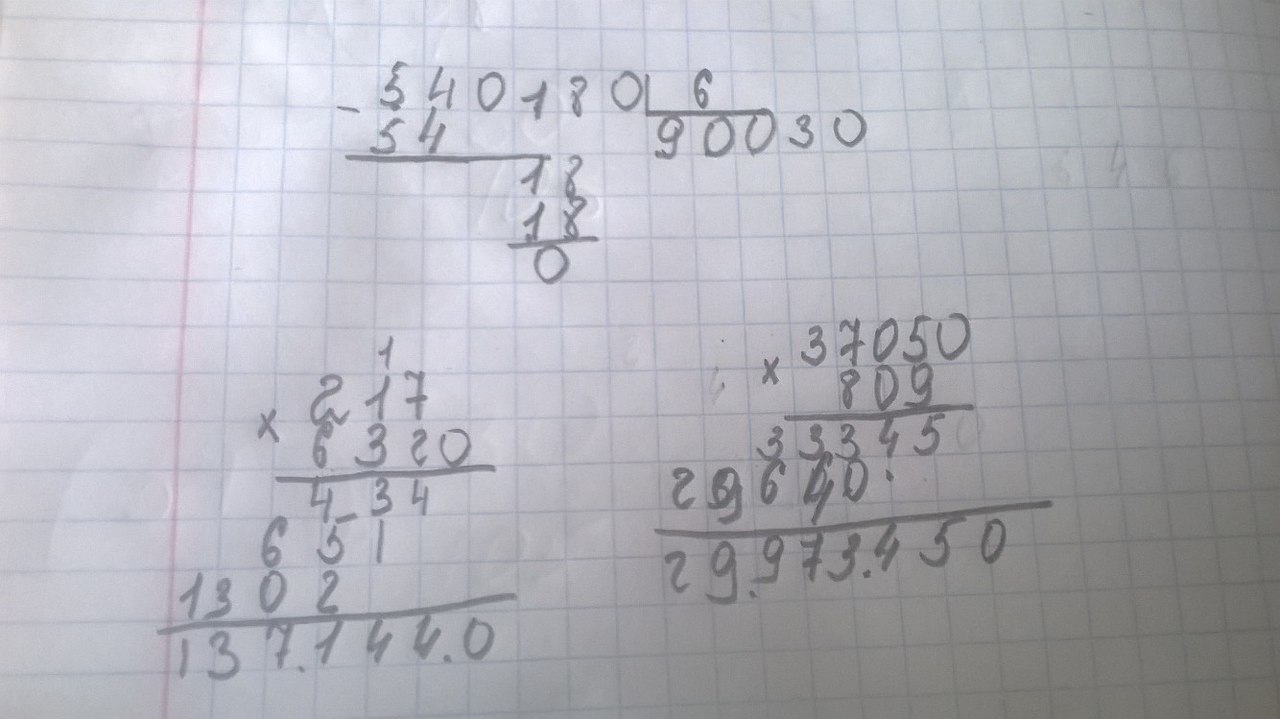 - 540180 | 6
54 90030
18
18
0
1
217
× 6320
434
651
1302
137.144.0
37050
× 809
33345
29640.
29.973.450